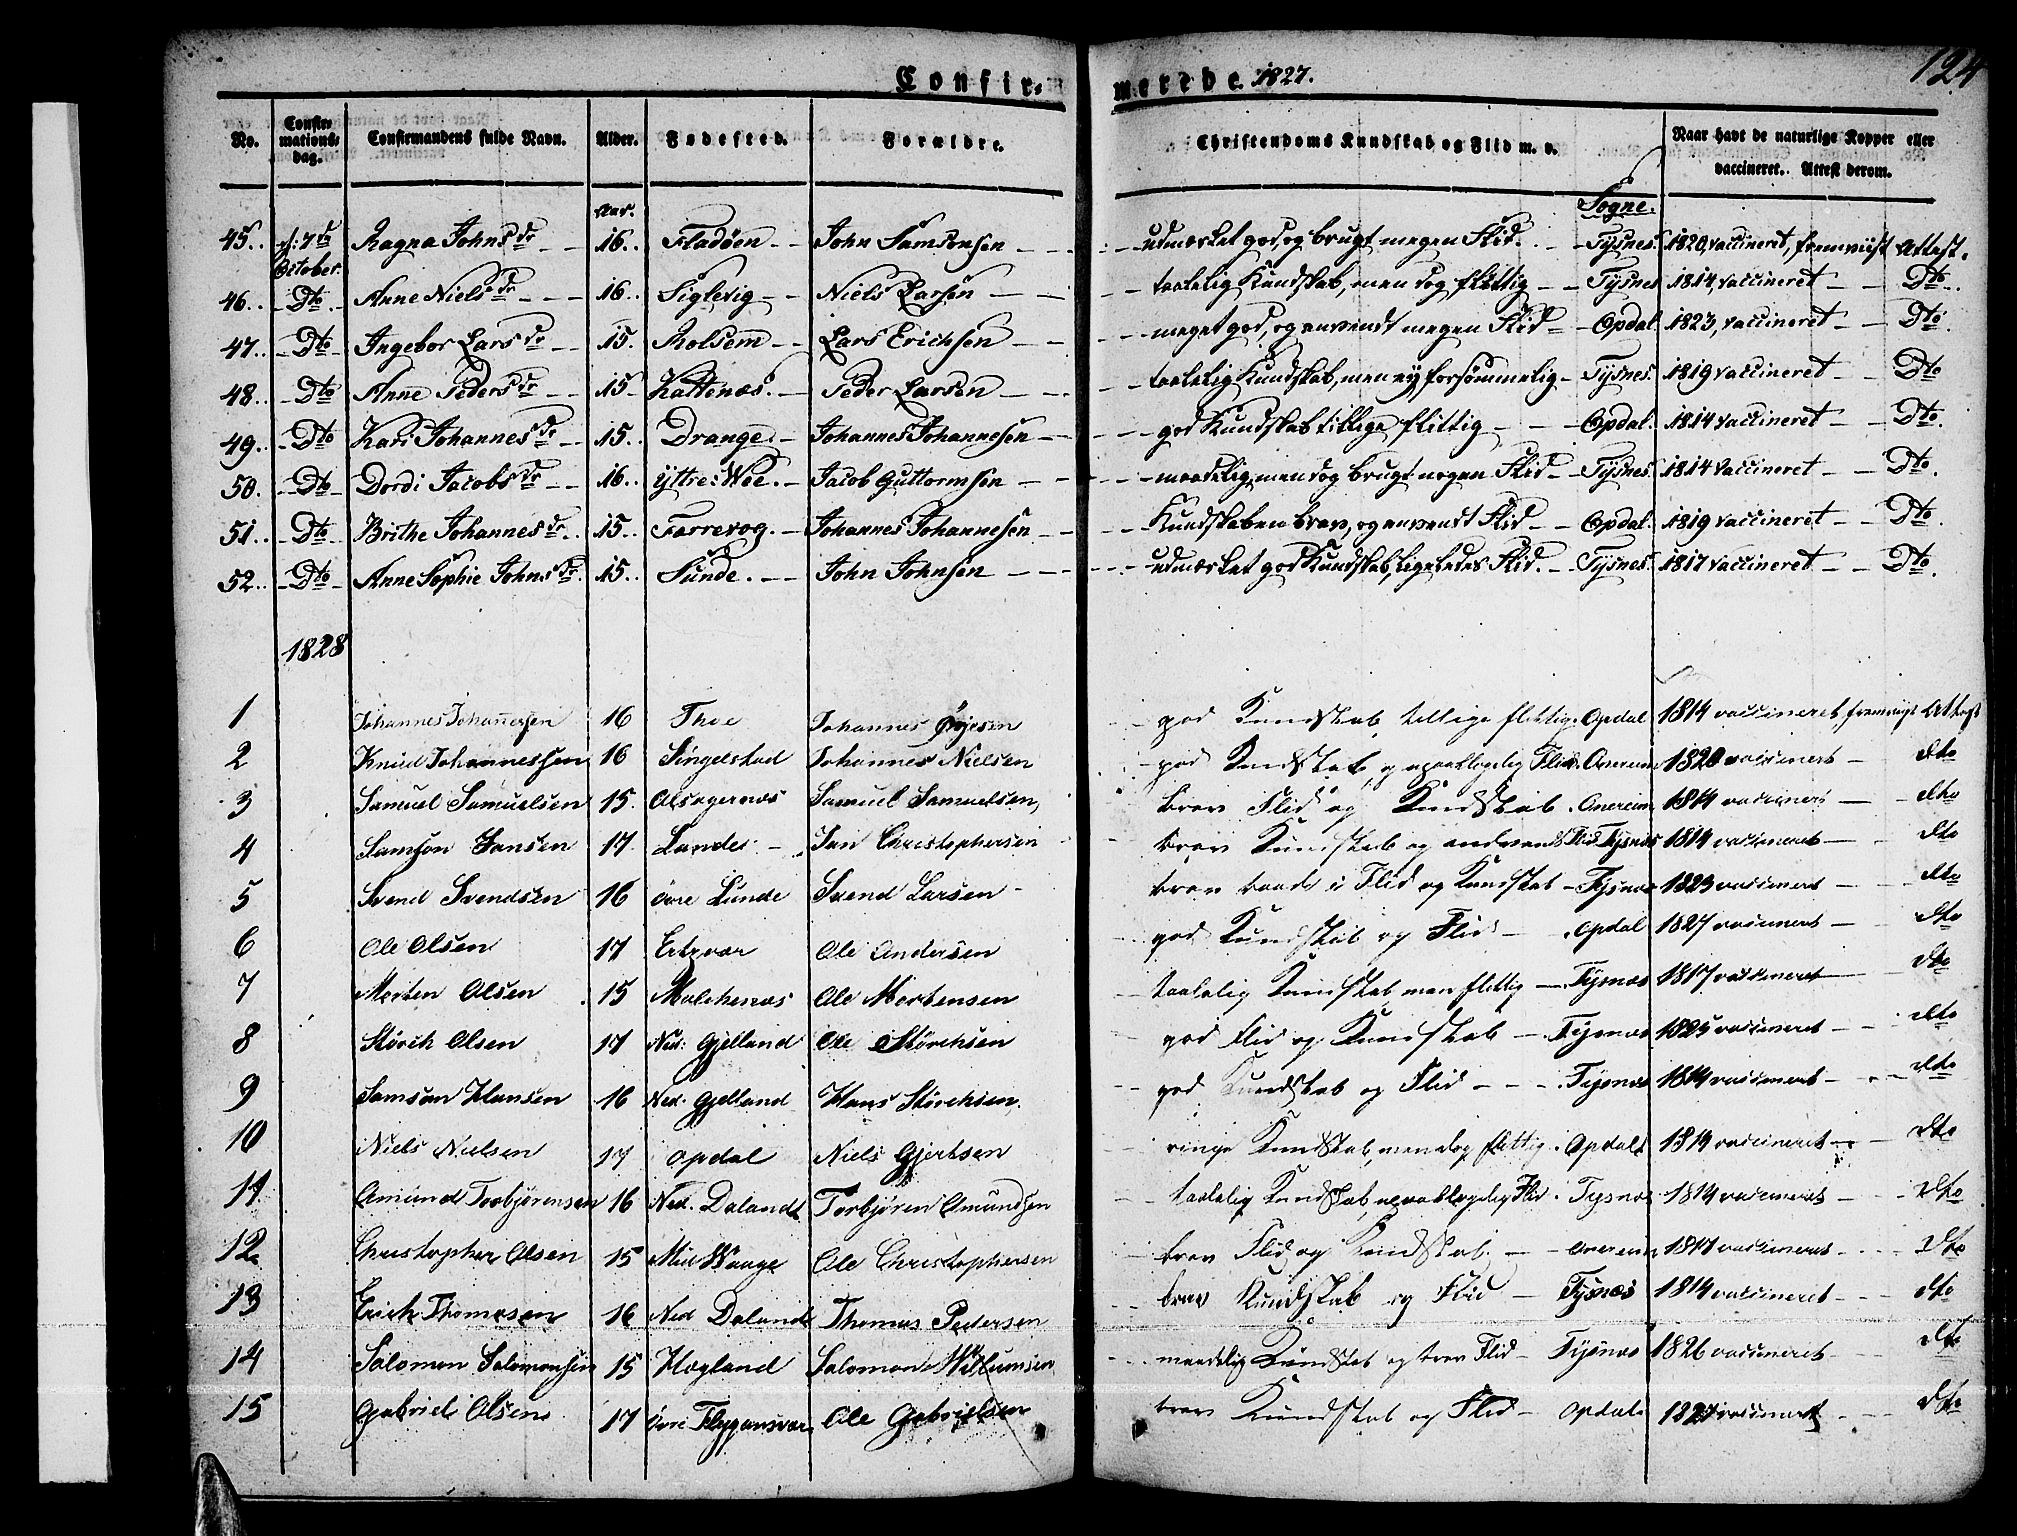 124
Confirmerede. 1827.
No. Confirmationsdag. Confirmandens fulde Navn. Alder. Fødested. Forældre. Christendoms Kundskab og Flid m. v. Naar havt de naturlige Kopper eller vaccineret. Attest derom.
Aar. Sogne.
45. d: 7de October. Ragna Johnsdr 16. Fladøen John Samsonsen udmærket god, og brugt megen Flid. Tysnes. 1820, vaccineret, fremviist Attest.
46. Dto Anne Nielsdr 16. Siglevig Niels Larsen taalelig Kundskab, men dog flittig Tysnes 1814, vaccineret Dto.
47. Dto Ingebor Larsdr 15. Rolsem Lars Erichsen meget god, og anvendt megen Flid Opdal. 1823, vaccineret Dto.
48. Dto Anne Pedersdr 15 Hattenæs. Peder Larsen taalelig Kundskab, men ej forsømmelig Tysnes. 1819 vaccineret Dto
49. Dto Kari Johannesdr 15. Drange. Johannes Johannesen god Kundskab tillige flittig Opdal. 1814 vaccineret Dto.
50. Dto Dordi Jacobsdr 16. yttre: Wee. Jacob Guttormsen maadelig, men dog brugt nogen Flid Tysnes. 1814 vaccineret Dto.
51. Dto Brithe Johannesdr. 15. Farrevog. Johannes Johannesen Kundskaben brav, og anvendt Flid Opdal. 1819 vaccineret Dto.
52. Dto Anne Sophie Johnsdr. 15. Sunde. John Johnsen udmærket god Kundskab, ligeledes Flid. Tysnes. 1817 vaccineret Dto.
1828
1 Johannes Johannessen 16 Thoe Johannes god Kundskab, tillige flittig. Opdal 1814 vaccineret fremvist Attest
2 Knud Johannessen 16 Singelstad Johannes Nielsen god Kundskab, og upaaklagelig Flid. Onereim 1820 vaccineret dto
3 Samuel Samuelsen 15. Alsagernæs Samuel Samuelsen, brav Flid og Kundskab. Onereim 1814 vaccineret dto
4 Samson Jansen 17. Landes Jan Christophersen brav Kundskab og anvendt Flid Tysnæs 1814 vaccineret dto
5 Svend Svendsen 16 övre Lunde Svend Larsen brav baade i Flid og Kundskab Tysnæs 1823 vaccineret dto
6 Ole Olsen 17 Ole Andersen god Kundskab og Flid Opdal 1827 vaccineret dto
7 Morten Olsen 15 Malchenæs Ole Mortensen taalelig Kundskab, men flittig Tysnæs 1817 vaccineret dto
8 Störch Olsen 17 Ned: Gjelland Ole Störchsen god Flid og Kundskab Tysnæs 1825 vaccineret dto
9 Samson Hansen 16 Ned. Gjelland Hans Störchsen. god Kundskab og Flid Tysnæs 1814 vaccineret dto
10 Niels Nielsen 17 Opdal Niels Gjertsen ringe Kundskab, men dog flittig. Opdals 1814 vaccineret dto
11 Amund Torbjörensen 16 Ned. Dalands Torbjören Amundsen taalelig Kundskab, upaaklagelig Flid. Tysnæs 1814 vaccineret dto
12. Christopher Olsen 15 Mid Waage Ole Christophersen brav Flid og Kundskab. Onereim 1817 vaccineret dto
13 Erich Thomesen 16 Ned Daland Thomas Pedersen brav Kundskab og Flid Tysnæs 1814 vaccineret dto
14 Salomon Salomonsen 15 Hogland Salomon maadelig Kundskab og brav Flid Tysnæs 1826 vaccineret dto
15 Gabriel Olsen 17 övre Ole Gabrielsen brav Kundskab og Flid Opdal 1827 vaccineret dto